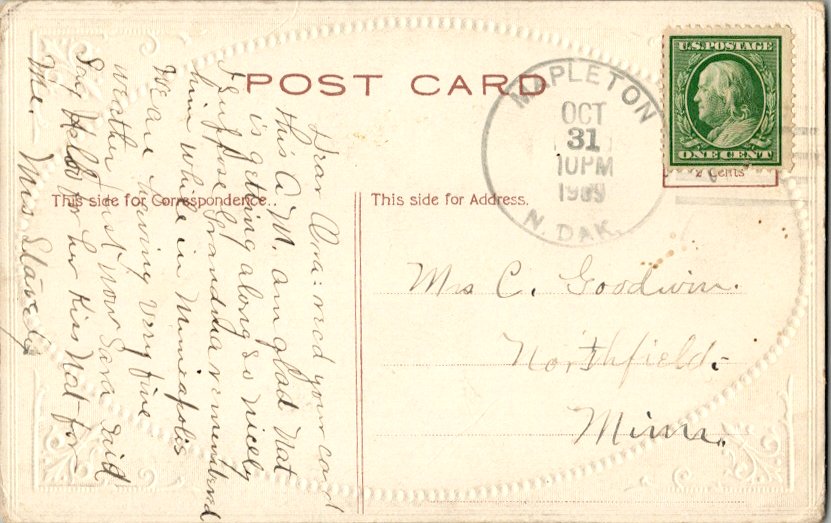 POST CARD
This side for Correspondence.
This side for Address.
U.S. POSTAGE
ONE CENT
2 Cents
MAPLETON
OCT
31
10PM
1909
N. DAK.
Dear Ona: recd your card
this A.M. am glad Nat
is getting along so nicely
I suppose Grandma remembered
him while in Minneapolis
We are having very fine
weather just now Sara said
Say Hello for her Kiss Nat for
Me. Mrs
Mrs C. Goodwin.
Northfield.
Minn.